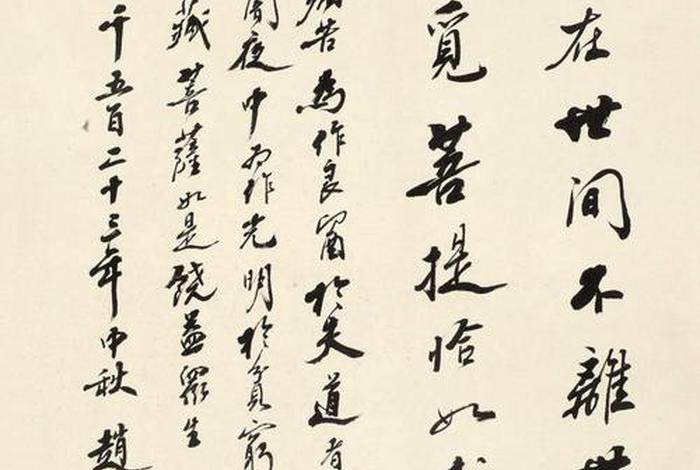 在世间不離世
覓菩提恰如求
病苦為作良醫於失道者
闇夜中為作光明於貧窮
藏菩薩如是饒益眾生
千五百二十三年中秋 趙